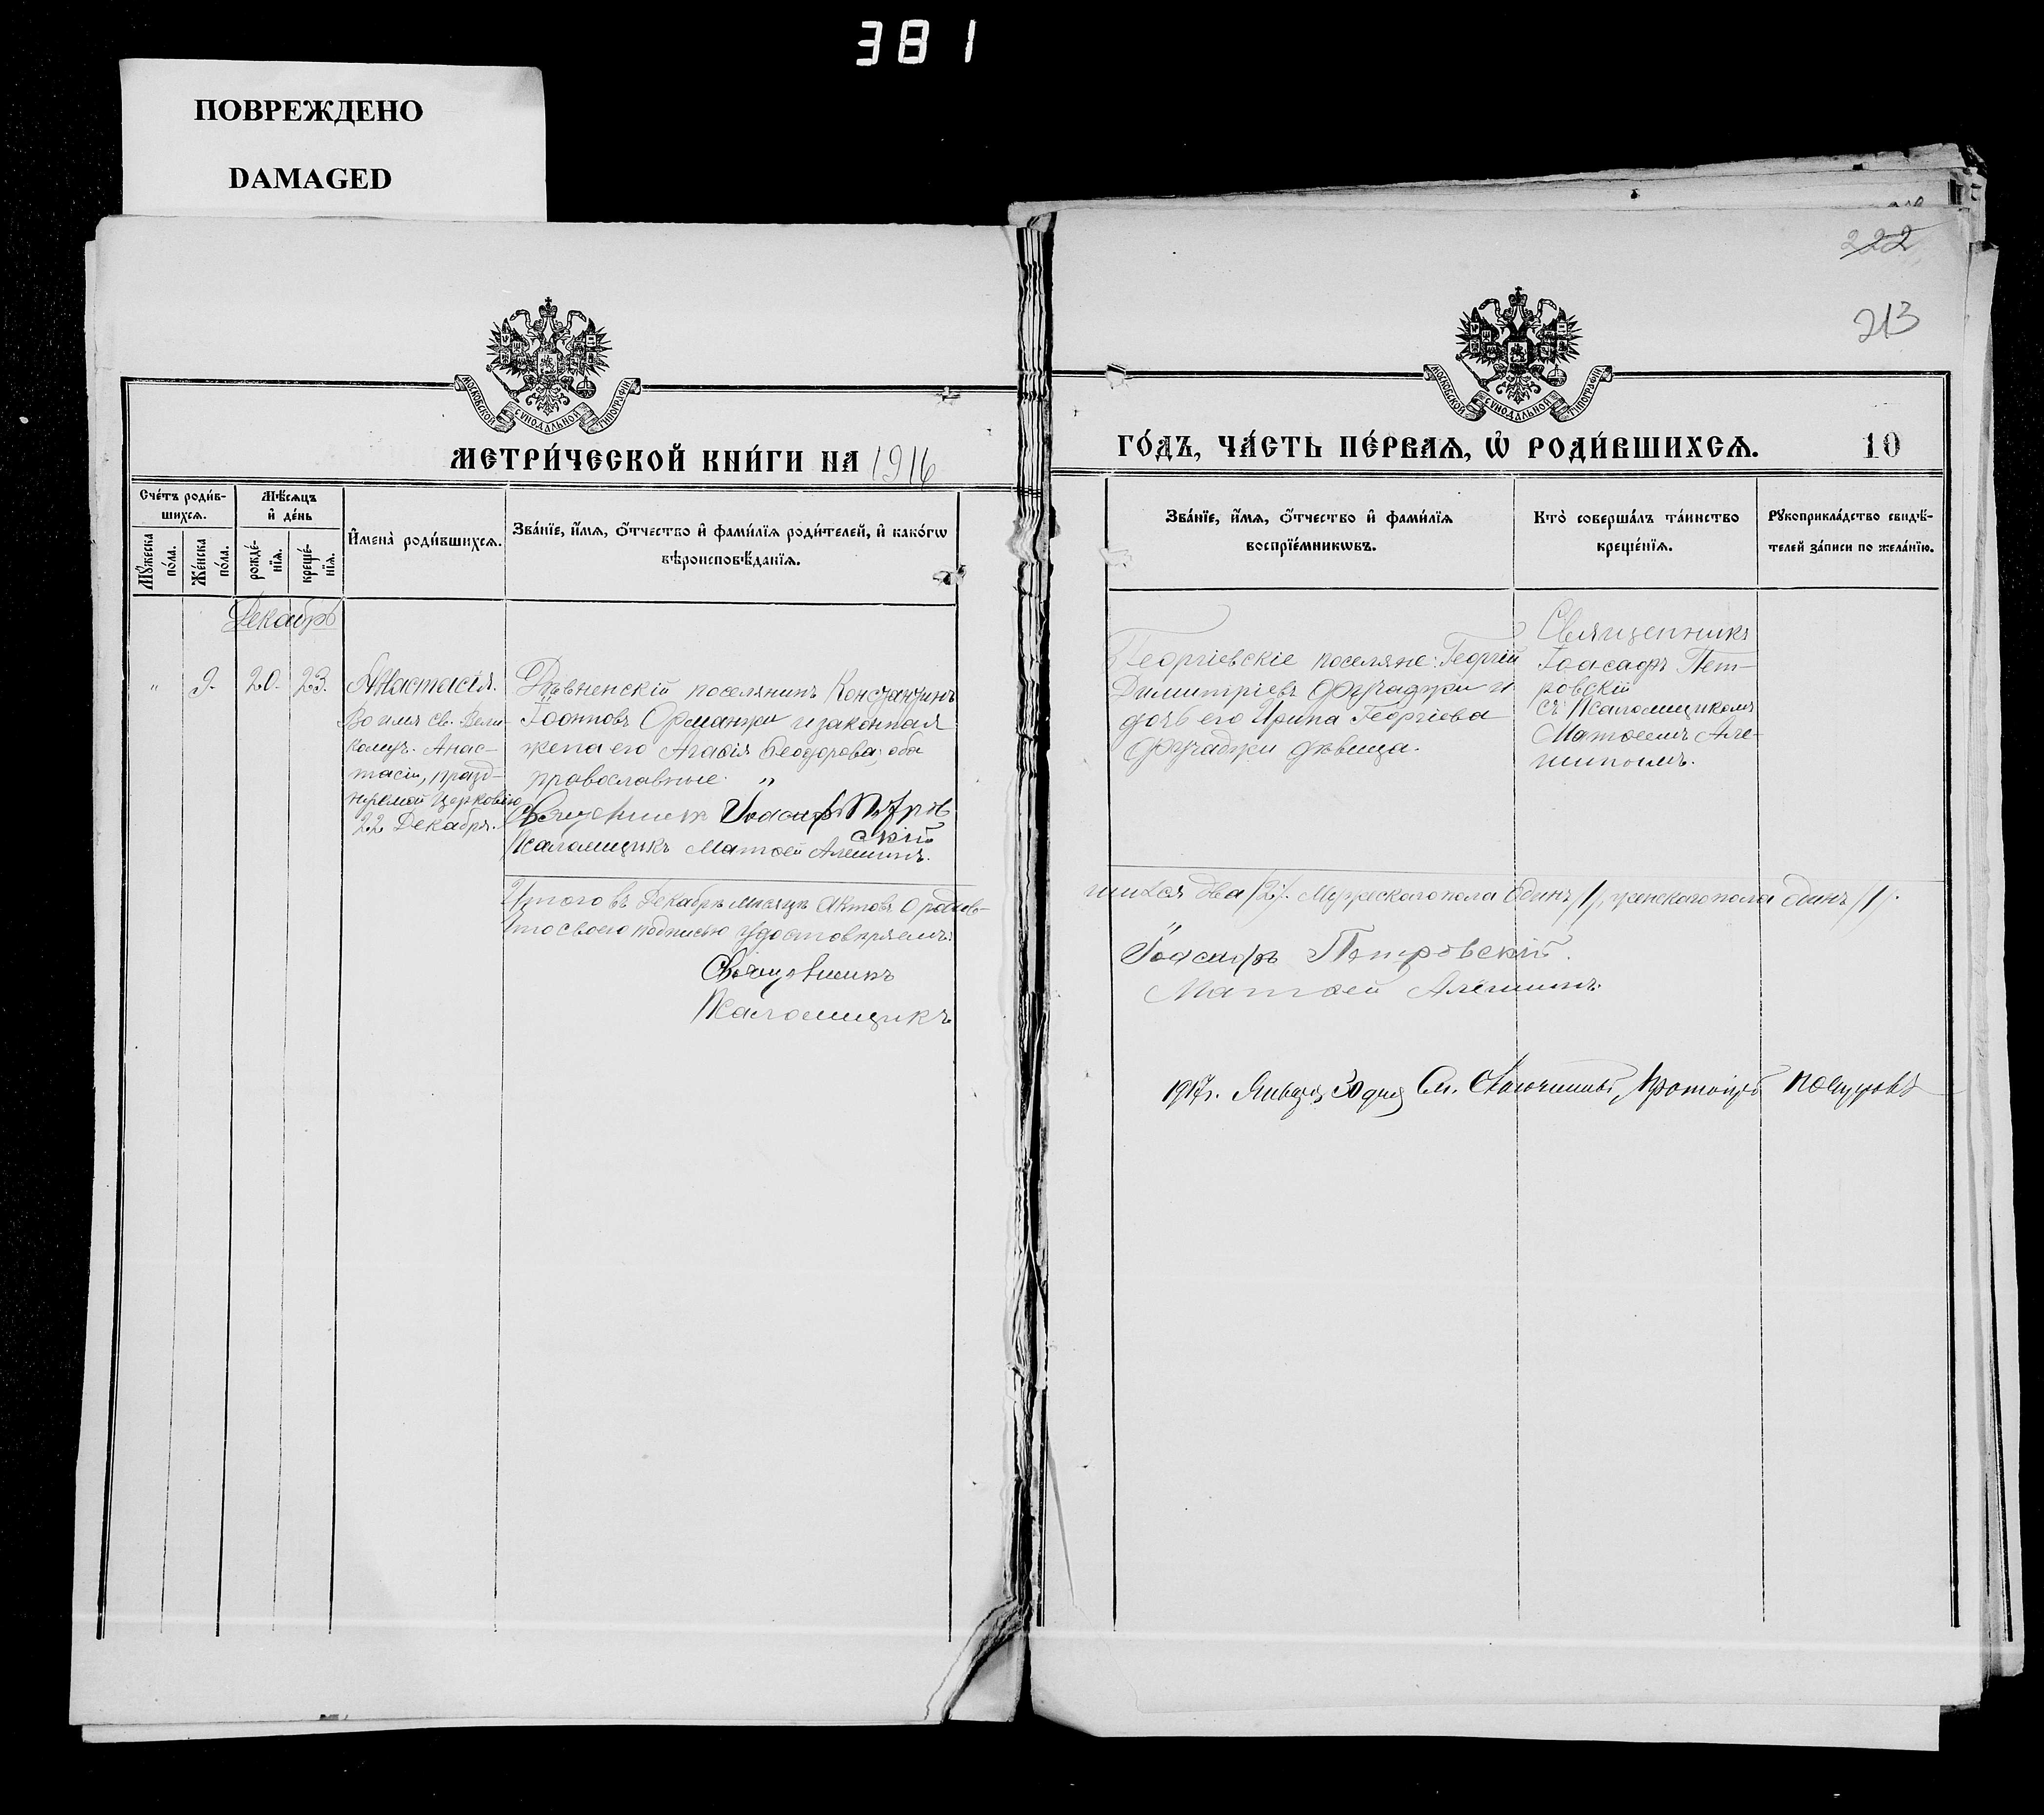 381
ПОВРЕЖДЕНО
DAMAGED
222
213
МОСКОВСКОЙ СѴНОДАЛЬНОЙ ТИПОГРАФІИ
МОСКОВСКОЙ СѴНОДАЛЬНОЙ ТИПОГРАФІИ
МЕТРИ́ЧЕСКОЙ КНИ́ГИ НА 1916
ГО́ДЪ, ЧА́СТЬ ПЕ́РВАѦ, Ѡ҆ РОДИ́ВШИХСѦ. 10
Сче́тъ роди́в-
шихсѧ.
Мꙋ́жеска по́ла.
Же́нска по́ла.
Мѣ́сѧцъ
и҆ де́нь
рожде́-
нїѧ.
креще́-
нїѧ.
И҆мена̀ роди́вшихсѧ.
Зва́нїе, и҆́мѧ, ѻ҆́тчество и҆ фами́лїѧ роди́телей, и҆ како́гѡ
вѣроисповѣ́данїѧ.
Зва́нїе, и҆́мѧ, ѻ҆́тчество и҆ фами́лїѧ
воспрїе́мникѡвъ.
Кто̀ соверша́лъ та́инство
креще́нїѧ.
Рꙋкоприкла́дство свидѣ́-
телей за́писи по жела́нїю.
Декабрь
" 9. 20. 23.
Анастасія.
Во имя св. Вели-
комуч. Анас-
тасіи, празд-
нуемой Церковію
22 Декабря.
поселянинъ Константинъ
Іоанновъ Орманжи и законная
жена его Агаѳія Ѳеодорова, оба
православные.
Священникъ Іоасафъ Петров
скій
Псаломщикъ Матѳей Алешинъ.
Георгіевскіе поселяне: Георгій
Димитріевъ Фучаджи и
дочь его Ирина Георгіева
Фучаджи дѣвица.
Священникъ
Іоасафъ Пет-
ровскій
съ Псаломщикомъ
Матѳеемъ Але-
шинымъ.
Итого въ Декабрѣ мѣсяцѣ актовъ о родив-
шихся два /2/. Мужескаго пола одинъ /1/, женскаго пола одинъ /1/.
Что своею подписью удостовѣряемъ:
Священникъ Іоасафъ Петровскій.
Псаломщикъ Матѳей Алешинъ.
1917г. Января 30 дня См. Благочинный, Протоіерей